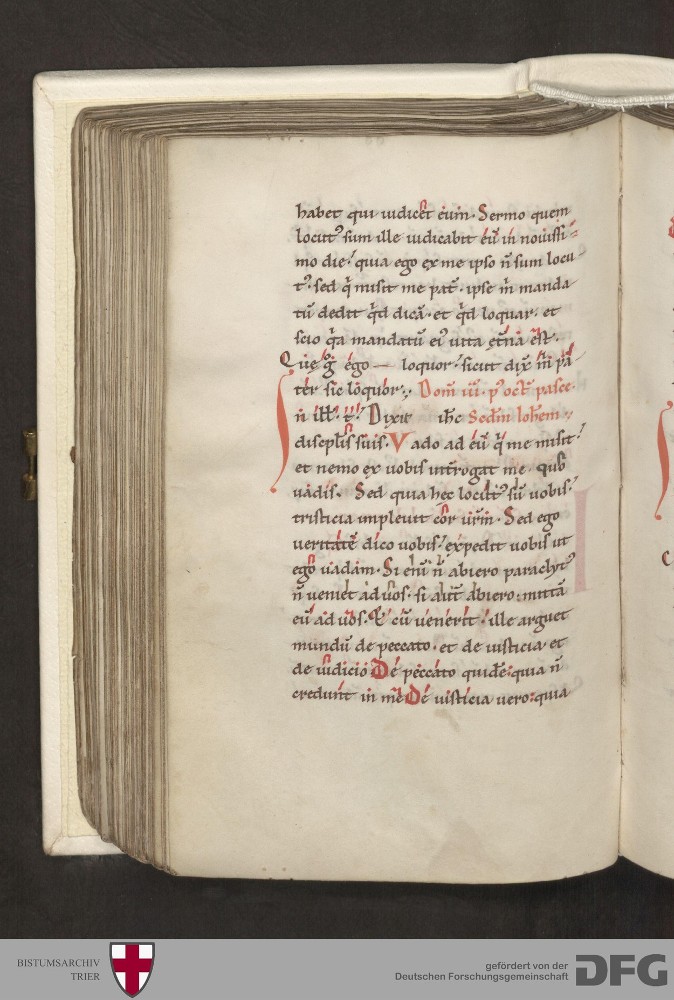 habet qui iudicet eum. Sermo quem
locut᷒ sum ille iudicabit eū in nouissi-
mo die. quia ego ex me ipso n̄ sum locu-
t᷒. sed q̄ misit me pat̄. ipse m̄ manda
tū dedit q̄d dicā. et q̄d loquar. et
scio q̄a mandatū ei᷒ uita ęt̄na ēst.
Quę g̊ ego loquor. sicut dix̄ m̄ pa
ter sic loquor. Dom̄ iii. p᷒ oct̄ pasce.
In ill̄. t̄. Dixit ih̄c Sed̄m Ioh̄em.
discipl̄is suis. Vado ad eū q̄ me misit.
et nemo ex uobis int̄rogat me. quo
uadis. Sed quia hec locut᷒ sū uobis.
tristicia impleuit cor ur̄m. Sed ego
ueritatē dico uobis. expedit uobis ut
ego uadam. Si enī n̄ abiero paraclyt᷒
n̄ ueniet ad uos. si aut̄ abiero. mittā
eū ad uos. Et cū uenerit. ille arguet
mundū de peccato. et de iusticia et
de iudicio De peccato quidē. quia n̄
credunt in me De iusticia uero. quia
BISTUMSARCHIV
TRIER
gefördert von der
Deutschen Forschungsgemeinschaft
DFG